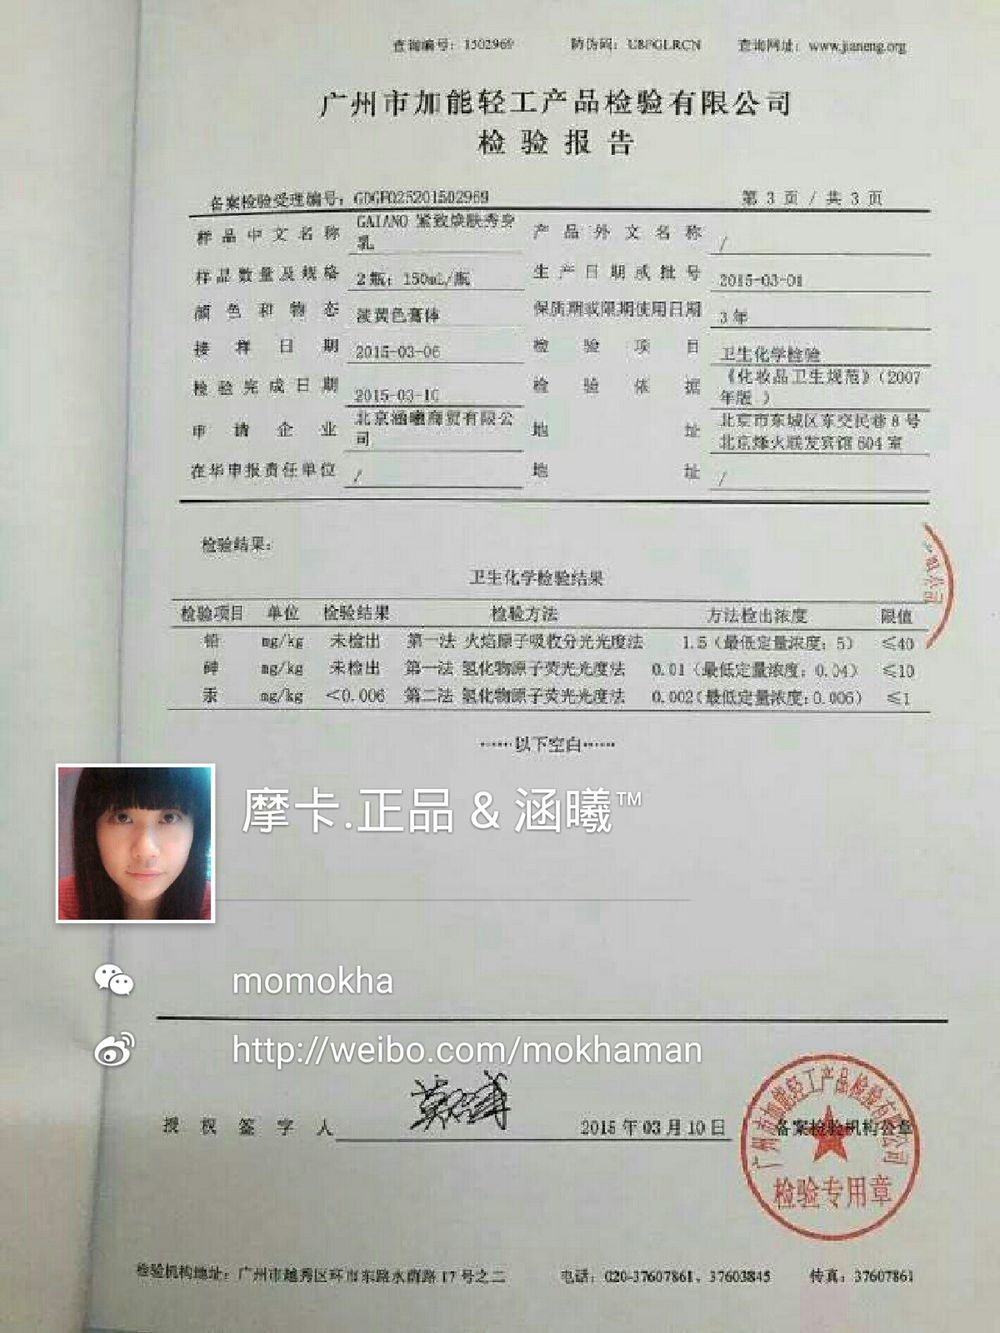 查询编号：1502969 防伪码：U8PGLRCN 查询网址：www.jianeng.org
广州市加能轻工产品检验有限公司
检验报告
备案检验受理编号：GDGFQ25201502969 第 3 页 / 共 3 页
样品中文名称 GAIANO 紧致焕肤秀身乳 产品外文名称 /
样品数量及规格 2瓶；150mL/瓶 生产日期或批号 2015-03-01
颜色和物态 淡黄色膏体 保质期或限期使用日期 3年
接样日期 2015-03-06 检验项目 卫生化学检验
检验完成日期 2015-03-10 检验依据 《化妆品卫生规范》（2007年版）
申请企业 北京涵曦商贸有限公司 地址 北京市东城区东交民巷8号北京烽火联发宾馆604室
在华申报责任单位 / 地址 /
检验结果：
卫生化学检验结果
检验项目 单位 检验结果 检验方法 方法检出浓度 限值
铅 mg/kg 未检出 第一法 火焰原子吸收分光光度法 1.5（最低定量浓度：5） ≤40
砷 mg/kg 未检出 第一法 氢化物原子荧光光度法 0.01（最低定量浓度：0.04） ≤10
汞 mg/kg <0.006 第二法 氢化物原子荧光光度法 0.002（最低定量浓度：0.006） ≤1
······以下空白······
限公司
摩卡.正品 & 涵曦™
momokha
http://weibo.com/mokhaman
授权签字人 2015年03月10日 备案检验机构公章
广州市加能轻工产品检验有限公司
检验专用章
检验机构地址：广州市越秀区环市东路水荫路17号之二 电话：020-37607861、37603845 传真：37607861